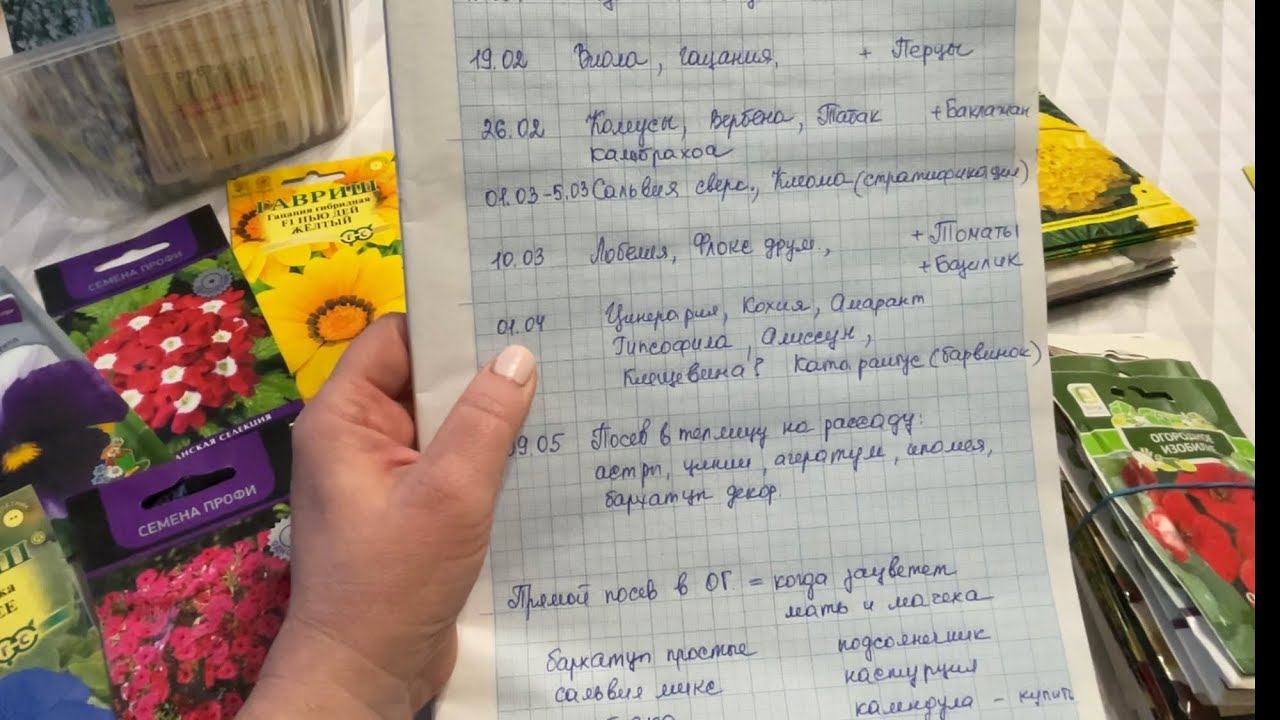 19.02 Виола, гацания, + Перцы
26.02 Колеусы, Вербена, Табак + Баклажан
калибрахоа
01.03-5.03 Сальвия сверк., Клеома (стратификация)
10.03 Лобелия, Флокс друм., + Томаты
+ Базилик
01.04 Цинерария, Кохия, Амарант
Гипсофила, Алиссум,
Клещевина? Катарантус (барвинок)
09.05 Посев в теплицу на рассаду:
астры, цинии, агератум, ипомея,
бархатцы декор.
Прямой посев в ОГ. = когда зацветет
мать и мачеха
бархатцы простые подсолнечник
сальвия микс настурция
календула - купить
ГАВРИШ
Гацания гибридная
F1 НЬЮ ДЕЙ
ЖЁЛТЫЙ
СЕМЕНА ПРОФИ
СЕМЕНА ПРОФИ
ОГОРОДНОЕ
ИЗОБИЛИЕ